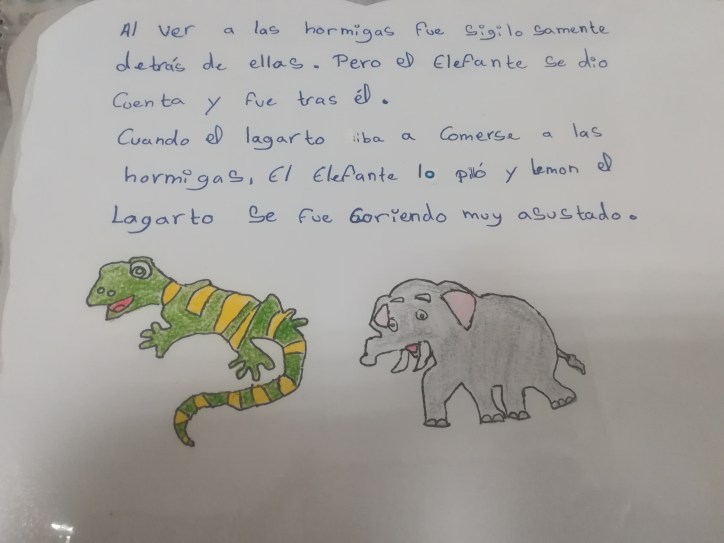 Al ver a las hormigas fue sigilosamente
detrás de ellas. Pero el Elefante se dio
Cuenta y fue tras él.
Cuando el lagarto iba a Comerse a las
hormigas, El Elefante lo pilló y el
Lagarto se fue Coriendo muy asustado.